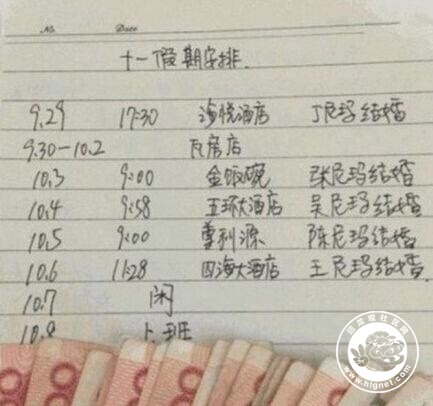 No.
Date
十一假期安排.
9.29 17:30 海悦酒店 丁尼玛结婚
9.30-10.2 瓦房店
10.3 9:00 金饭碗 张尼玛结婚
10.4 9:58 五环大酒店 吴尼玛结婚
10.5 9:00 喜利源 陈尼玛结婚
10.6 11:28 四海大酒店 王尼玛结婚.
10.7 闲
10.8 上班
www.hlgnet.com